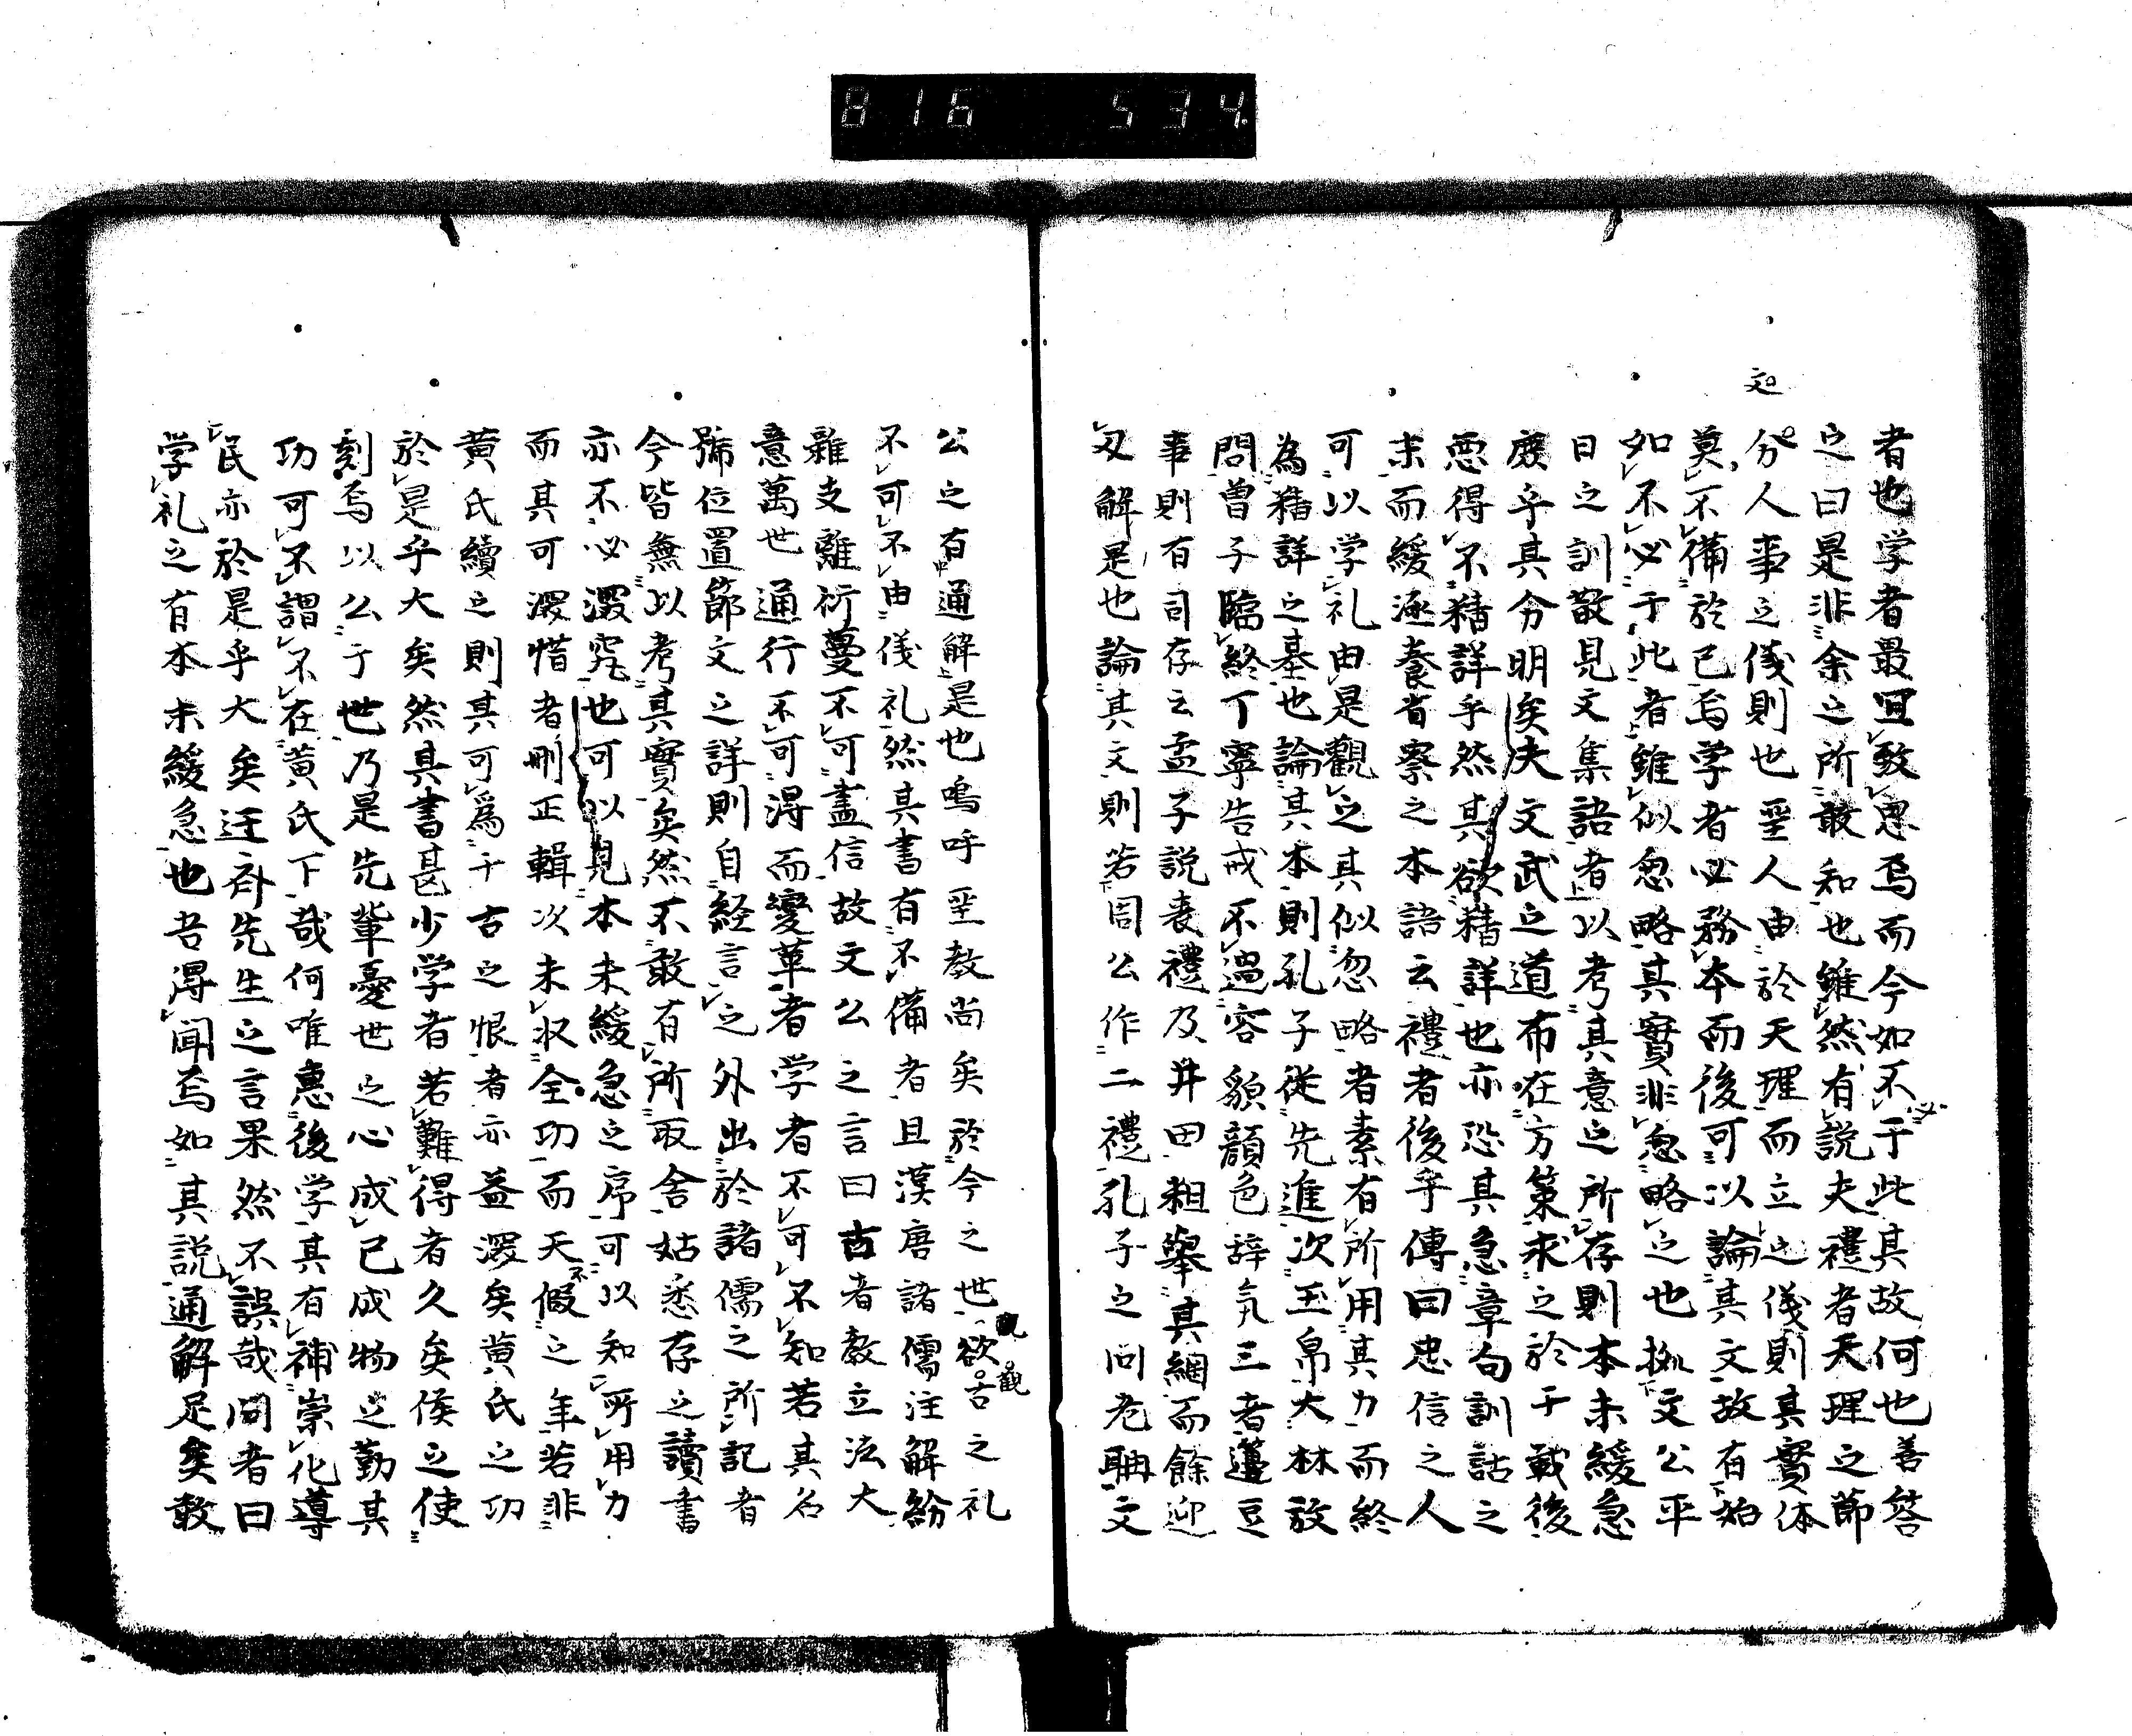 816 534
者也学者最宜致思焉而今如不必于此其故何也善答
之曰是非余之所敢知也雖然有説夫禮者天理之節
文
分人事之儀則也聖人由於天理而立之儀則其實体
莫不備於已焉学者必務本而後可以論其文故有始
如不必于此者雖似忽略其實非忽略之也拠文公平
日之訓敬見文集語者以考其意之所存則本末緩急
廢乎其分明矣夫文武之道布在方策求之於千載後
悪得不精詳乎然其欲精詳也亦恐其急章句訓詁之
末而緩涵養省察之本語云禮者後乎傳曰忠信之人
可以学礼由是觀之其似忽略者素有所用其力而終
為精詳之基也論其本則孔子従先進次玉帛大林放
問曽子臨終丁寧告戒不過容貌顔色辞気三者籩豆
事則有司存云孟子説喪禮及井田粗舉其綱而餘迎
刄解是也論其文則若周公作二禮孔子之问老聃文
公之有通解是也嗚呼聖教尚矣於今之世欲觀古之礼
不可不由儀礼然其書有不備者且漢唐諸儒注解紛
雜支離衍蔓不可盡信故文公之言曰古者教立法大
意萬世通行不可得而變革者学者不可不知若其名
號位置節文之詳則自経言之外出於諸儒之所記者
今皆無以考其實矣然不敢有所取舎姑悉存之讀書
亦不必深究也可以見本末緩急之序可以知所用力
而其可深惜者刪正輯次未収全功而天不假之年若非
黄氏續之則其可為千古之恨者亦益深矣黄氏之功
於是乎大矣然其書甚少学者若難得者久矣侯之使
刻焉以公于世乃是先輩憂世之心成已成物之勤其
功可不謂不在黄氏下哉何唯惠後学其有補崇化導
民亦於是乎大矣迂斉先生之言果然不誤哉问者曰
学礼之有本末緩急也吾得聞焉如其説通解足矣敢